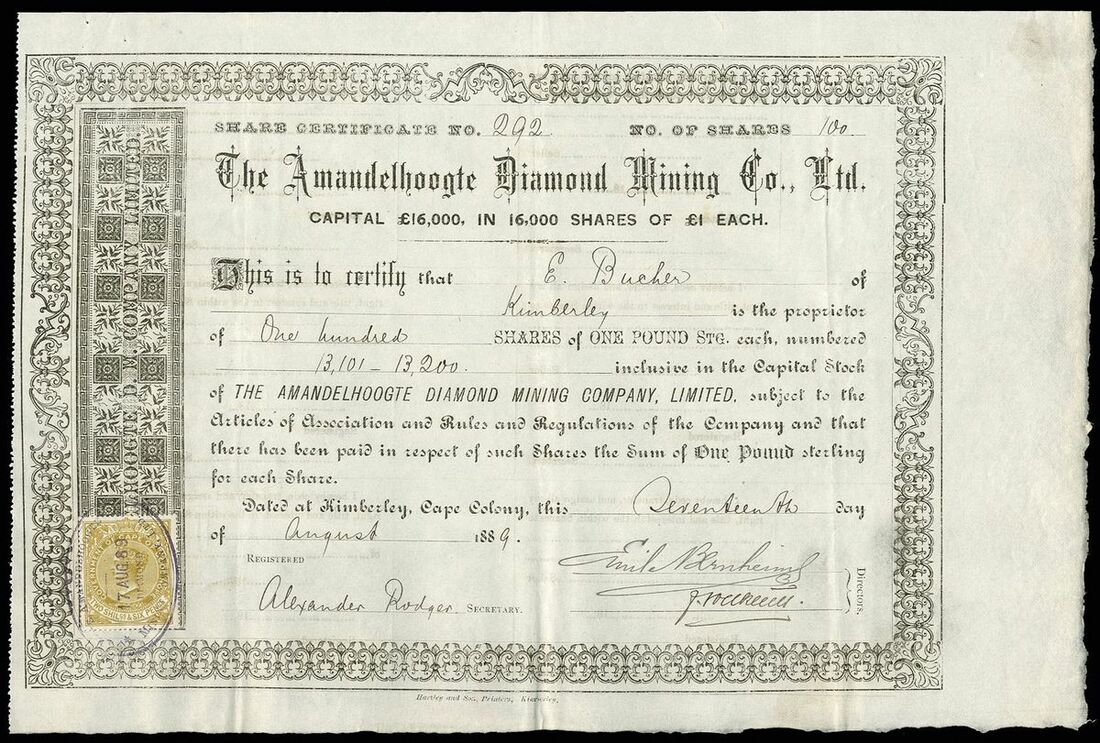 SHARE CERTIFICATE NO. 292 NO. OF SHARES 100
The Amandelhoogte Diamond Mining Co., Ltd.
CAPITAL £16,000, IN 16,000 SHARES OF £1 EACH.
This is to certify that E. Bucher of
Kimberley is the proprietor
of One hundred SHARES of ONE POUND STG. each, numbered
13,101 – 13,200. inclusive in the Capital Stock
of THE AMANDELHOOGTE DIAMOND MINING COMPANY, LIMITED, subject to the
Articles of Association and Rules and Regulations of the Company and that
there has been paid in respect of such Shares the Sum of One Pound sterling
for each Share.
Dated at Kimberley, Cape Colony, this Seventeenth day
of August 1889.
REGISTERED
Emil Bernheim
Alexander Rodger SECRETARY.
Directors.
LHOOGTE D. M. COMPANY LIMITED.
17 AUG. 89
Hartley and Son, Printers, Kimberley.